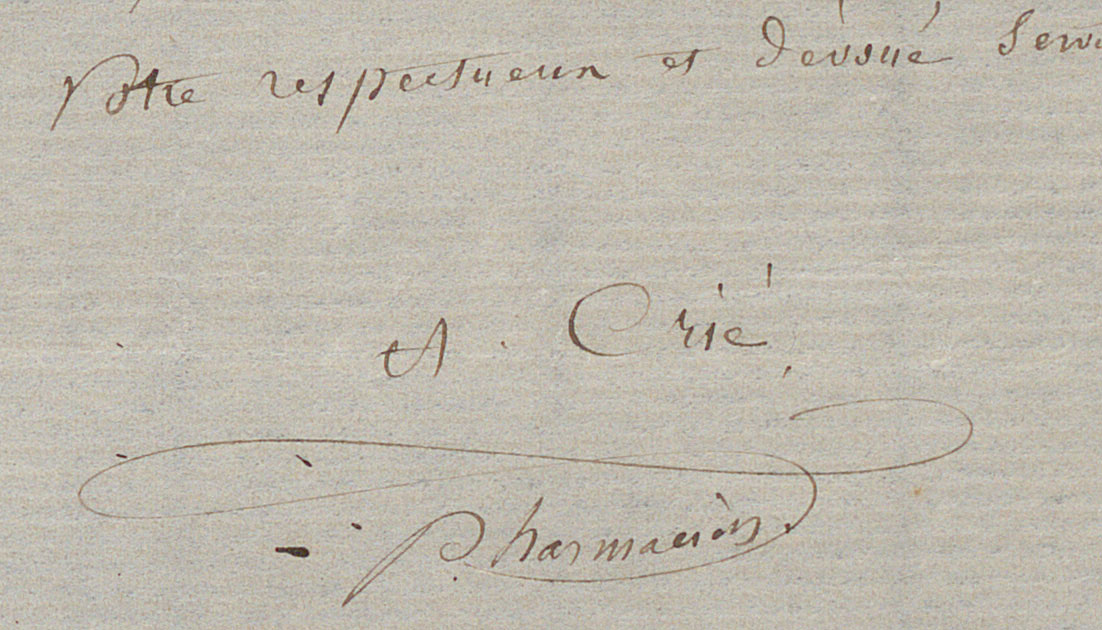 Votre respectueux et dévoué Serv
A. Crié
Pharmacien